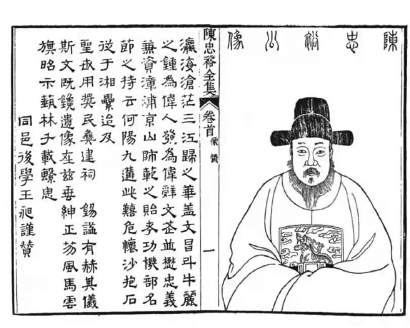 陳忠裕公像
陳忠裕全集
卷首 像贊
一
瀛海滄茫三江歸之華蓋文昌斗牛麗
之鍾為偉人發為偉辭文茲並懋忠義
兼資漳浦京山師乾之貽表功樸部名
節之持云何陽九遘此難危懷沙抱石
從于湘纍迨及
聖世用獎民彝建祠 錫諡有赫其儀
斯文既鏡遺像在茲垂紳正笏風馬雲
旗昭示藝林千載縣忠
同邑後學王昶謹贊